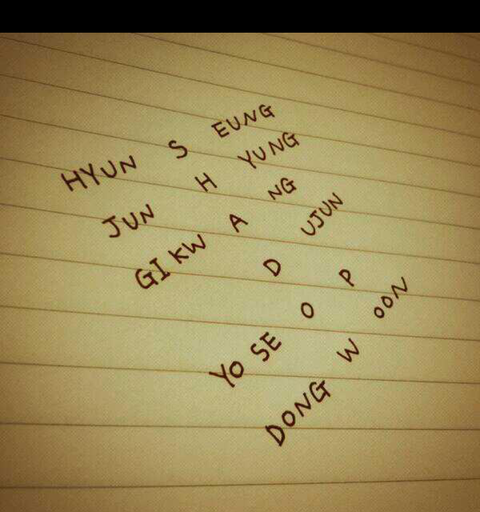 HYUN S EUNG
JUN H YUNG
GIKW A NG
D UJUN
YO SE O P
DONG W OON